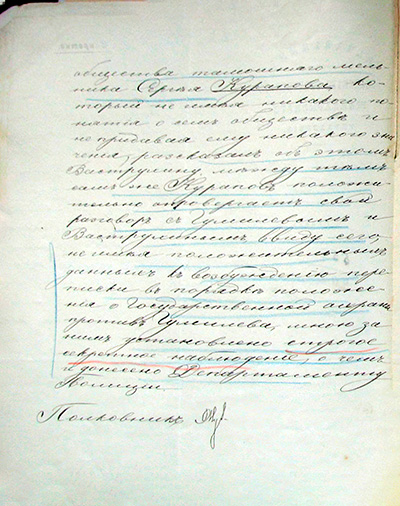 общества тамошняго мель-
ника Сергѣя Курапова, ко-
торый не имѣя никакого по-
нятія о семъ обществѣ и
не придавая ему никакого зна-
ченія, разсказалъ объ этомъ
Ваструлину между тѣмъ
самъ же Кураповъ положи-
тельно опровергаетъ свой
разговоръ съ Гумилевымъ и
Ваструлинымъ. Ввиду сего,
не имѣя положительныхъ
данныхъ къ возбужденію пере-
писки въ порядкѣ положе-
нія о Государственной охранѣ
противъ Гумилева, мною за
нимъ установлено строгое
секретное наблюденіе, о чемъ
и донесено Департаменту
Полиціи.
Полковникъ